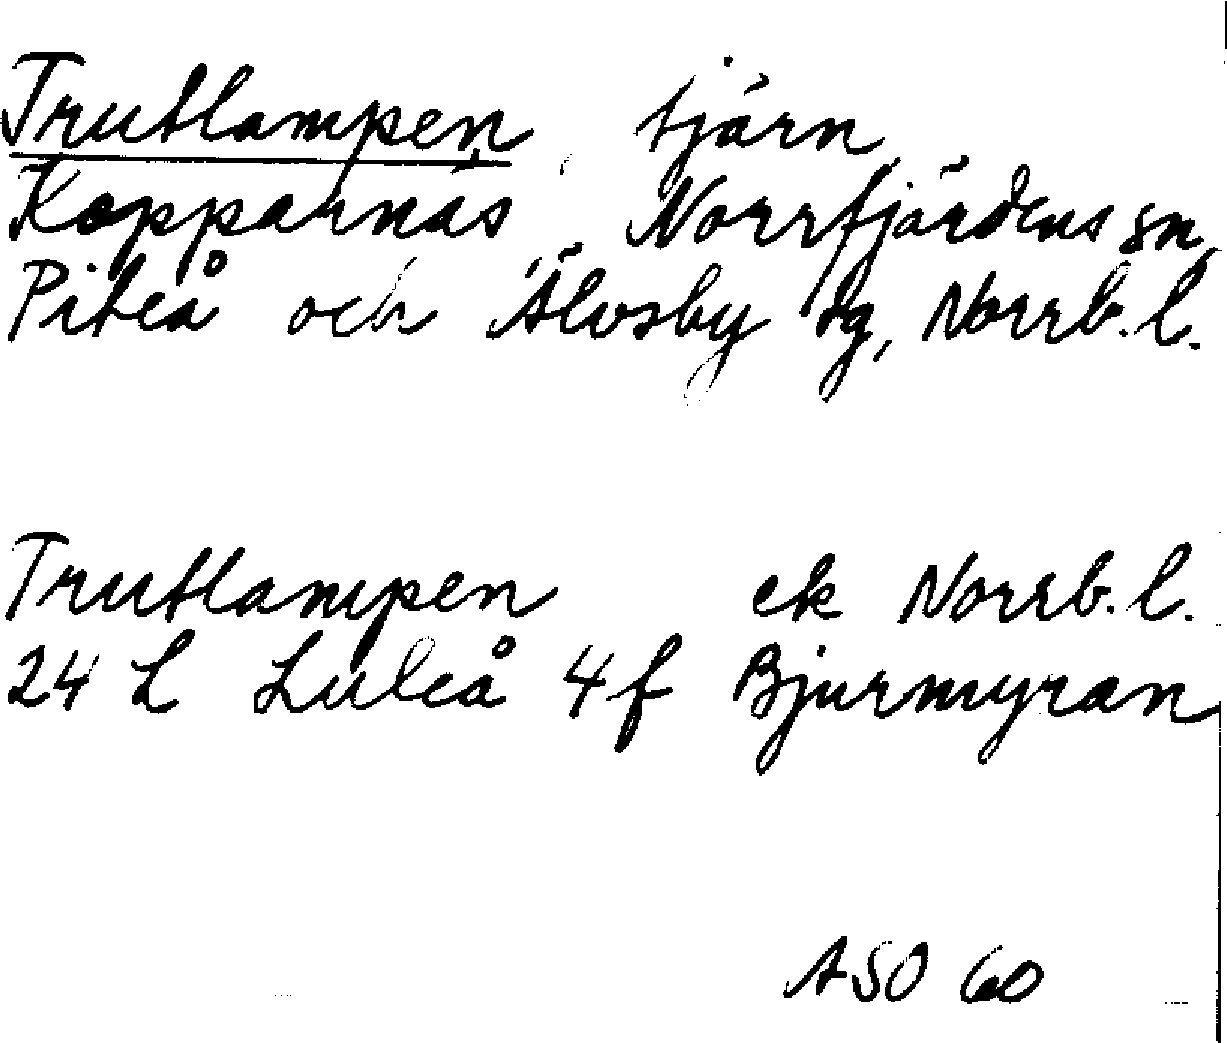 Trutlampen, tjärn,
Kopparnäs, Norrfjärdens sn,
Piteå och Älvsby dg, Norrb. l.
Trutlampen ek Norrb. l.
24 L Luleå 4 f Bjurmyran
ASO 60